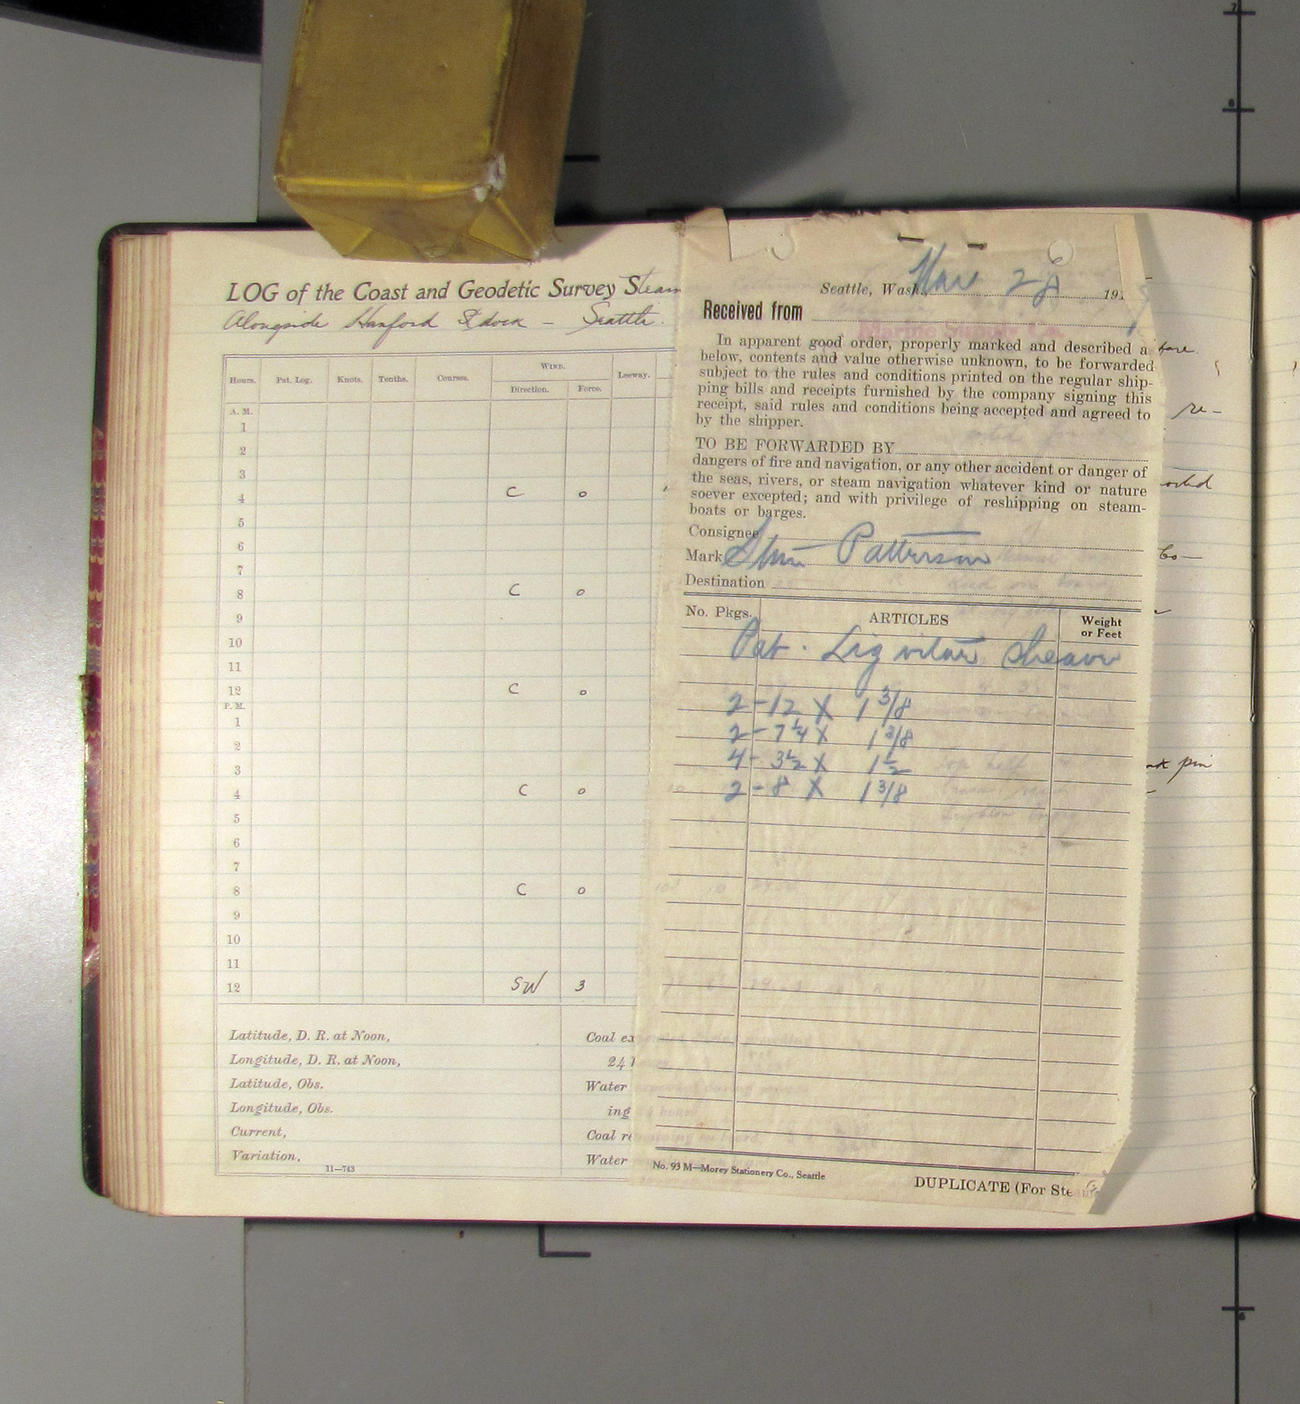 LOG of the Coast and Geodetic Survey Steam
Alongside Hanford St dock - Seattle.
Hours. Pat. Log. Knots. Tenths. Courses. WIND. Leeway.
Direction. Force.
A. M.
1
2
3
4 C 0
5
6
7
8 C 0
9
10
11
12 C 0
P. M.
1
2
3
4 C 0
5
6
7
8 C 0
9
10
11
12 SW 3
Latitude, D. R. at Noon,
Longitude, D. R. at Noon,
Latitude, Obs.
Longitude, Obs.
Current,
Variation,
11—743
Coal ex
24
Water
ing
Coal re
Water
Seattle, Wash. Mar 28 191
Received from
Marine Supply Co.
In apparent good order, properly marked and described a
below, contents and value otherwise unknown, to be forwarded
subject to the rules and conditions printed on the regular ship-
ping bills and receipts furnished by the company signing this
receipt, said rules and conditions being accepted and agreed to
by the shipper.
TO BE FORWARDED BY
dangers of fire and navigation, or any other accident or danger of
the seas, rivers, or steam navigation whatever kind or nature
soever excepted; and with privilege of reshipping on steam-
boats or barges.
Consignee
Mark Stmr Patterson
Destination
No. Pkgs. ARTICLES Weight or Feet
Pat. Lig vitae Sheaves
2 - 12 X 1 3/8
2 - 7 1/4 X 1 3/8
4 - 3 1/2 X 1 1/2
2 - 8 X 1 3/8
No. 93 M—Morey Stationery Co., Seattle
DUPLICATE (For Ste
re-
Co-
pin